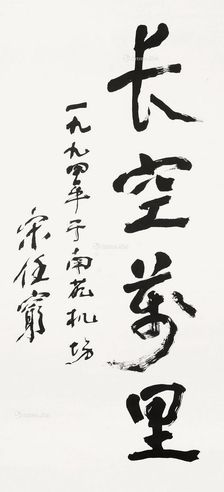 长空萬里
一九九四年于南苑机场
宋任窮